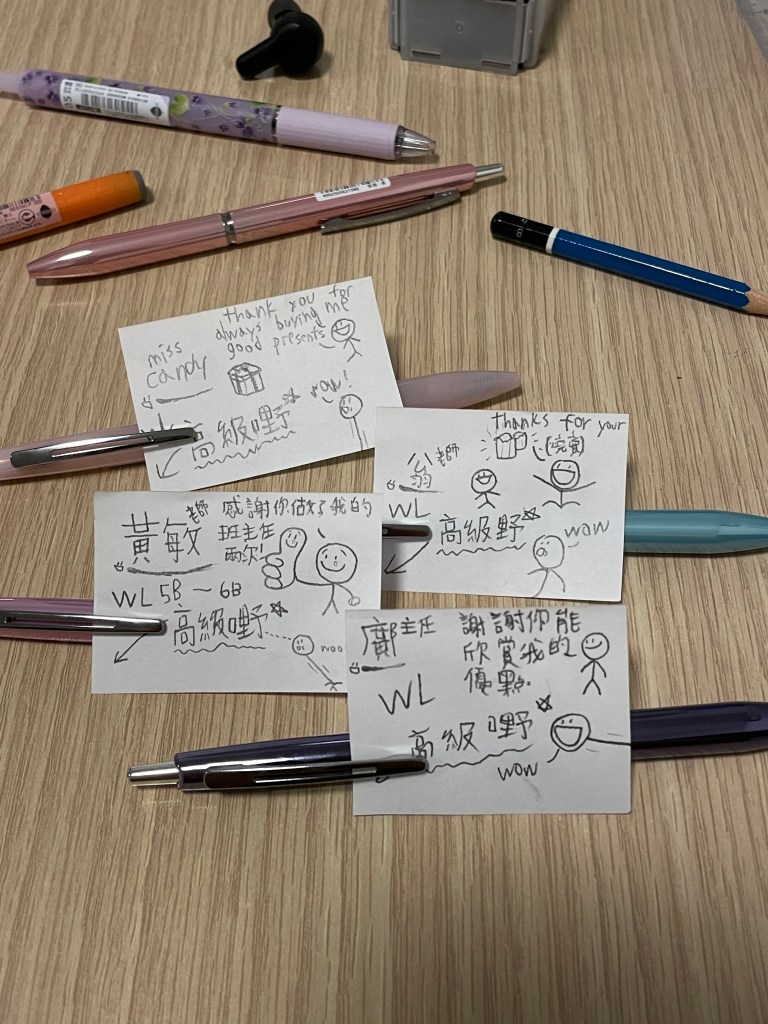 thank you for
always buying me
good presents
miss
candy
wow!
高級嘢
thanks for your
翁老師
WL
高級野
wow
黃敏老師
感謝你做了我的
班主任
兩次!
WL 5B 一 6B
高級嘢
woo
鄺主任
謝謝你能
欣賞我的
優點.
WL
高級嘢
wow